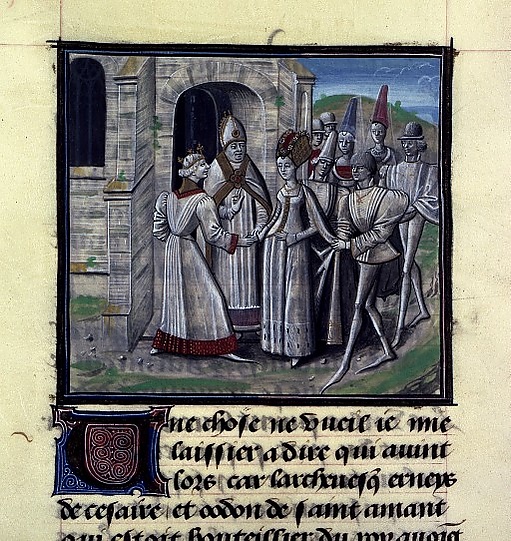 Une chose ne vueil ie mie
laissier a dire qui auint
lors car larcheuesq̃ erneps
de cesaire et oodon de saint amant
qui estoit bouteillier du roy auoiẽt